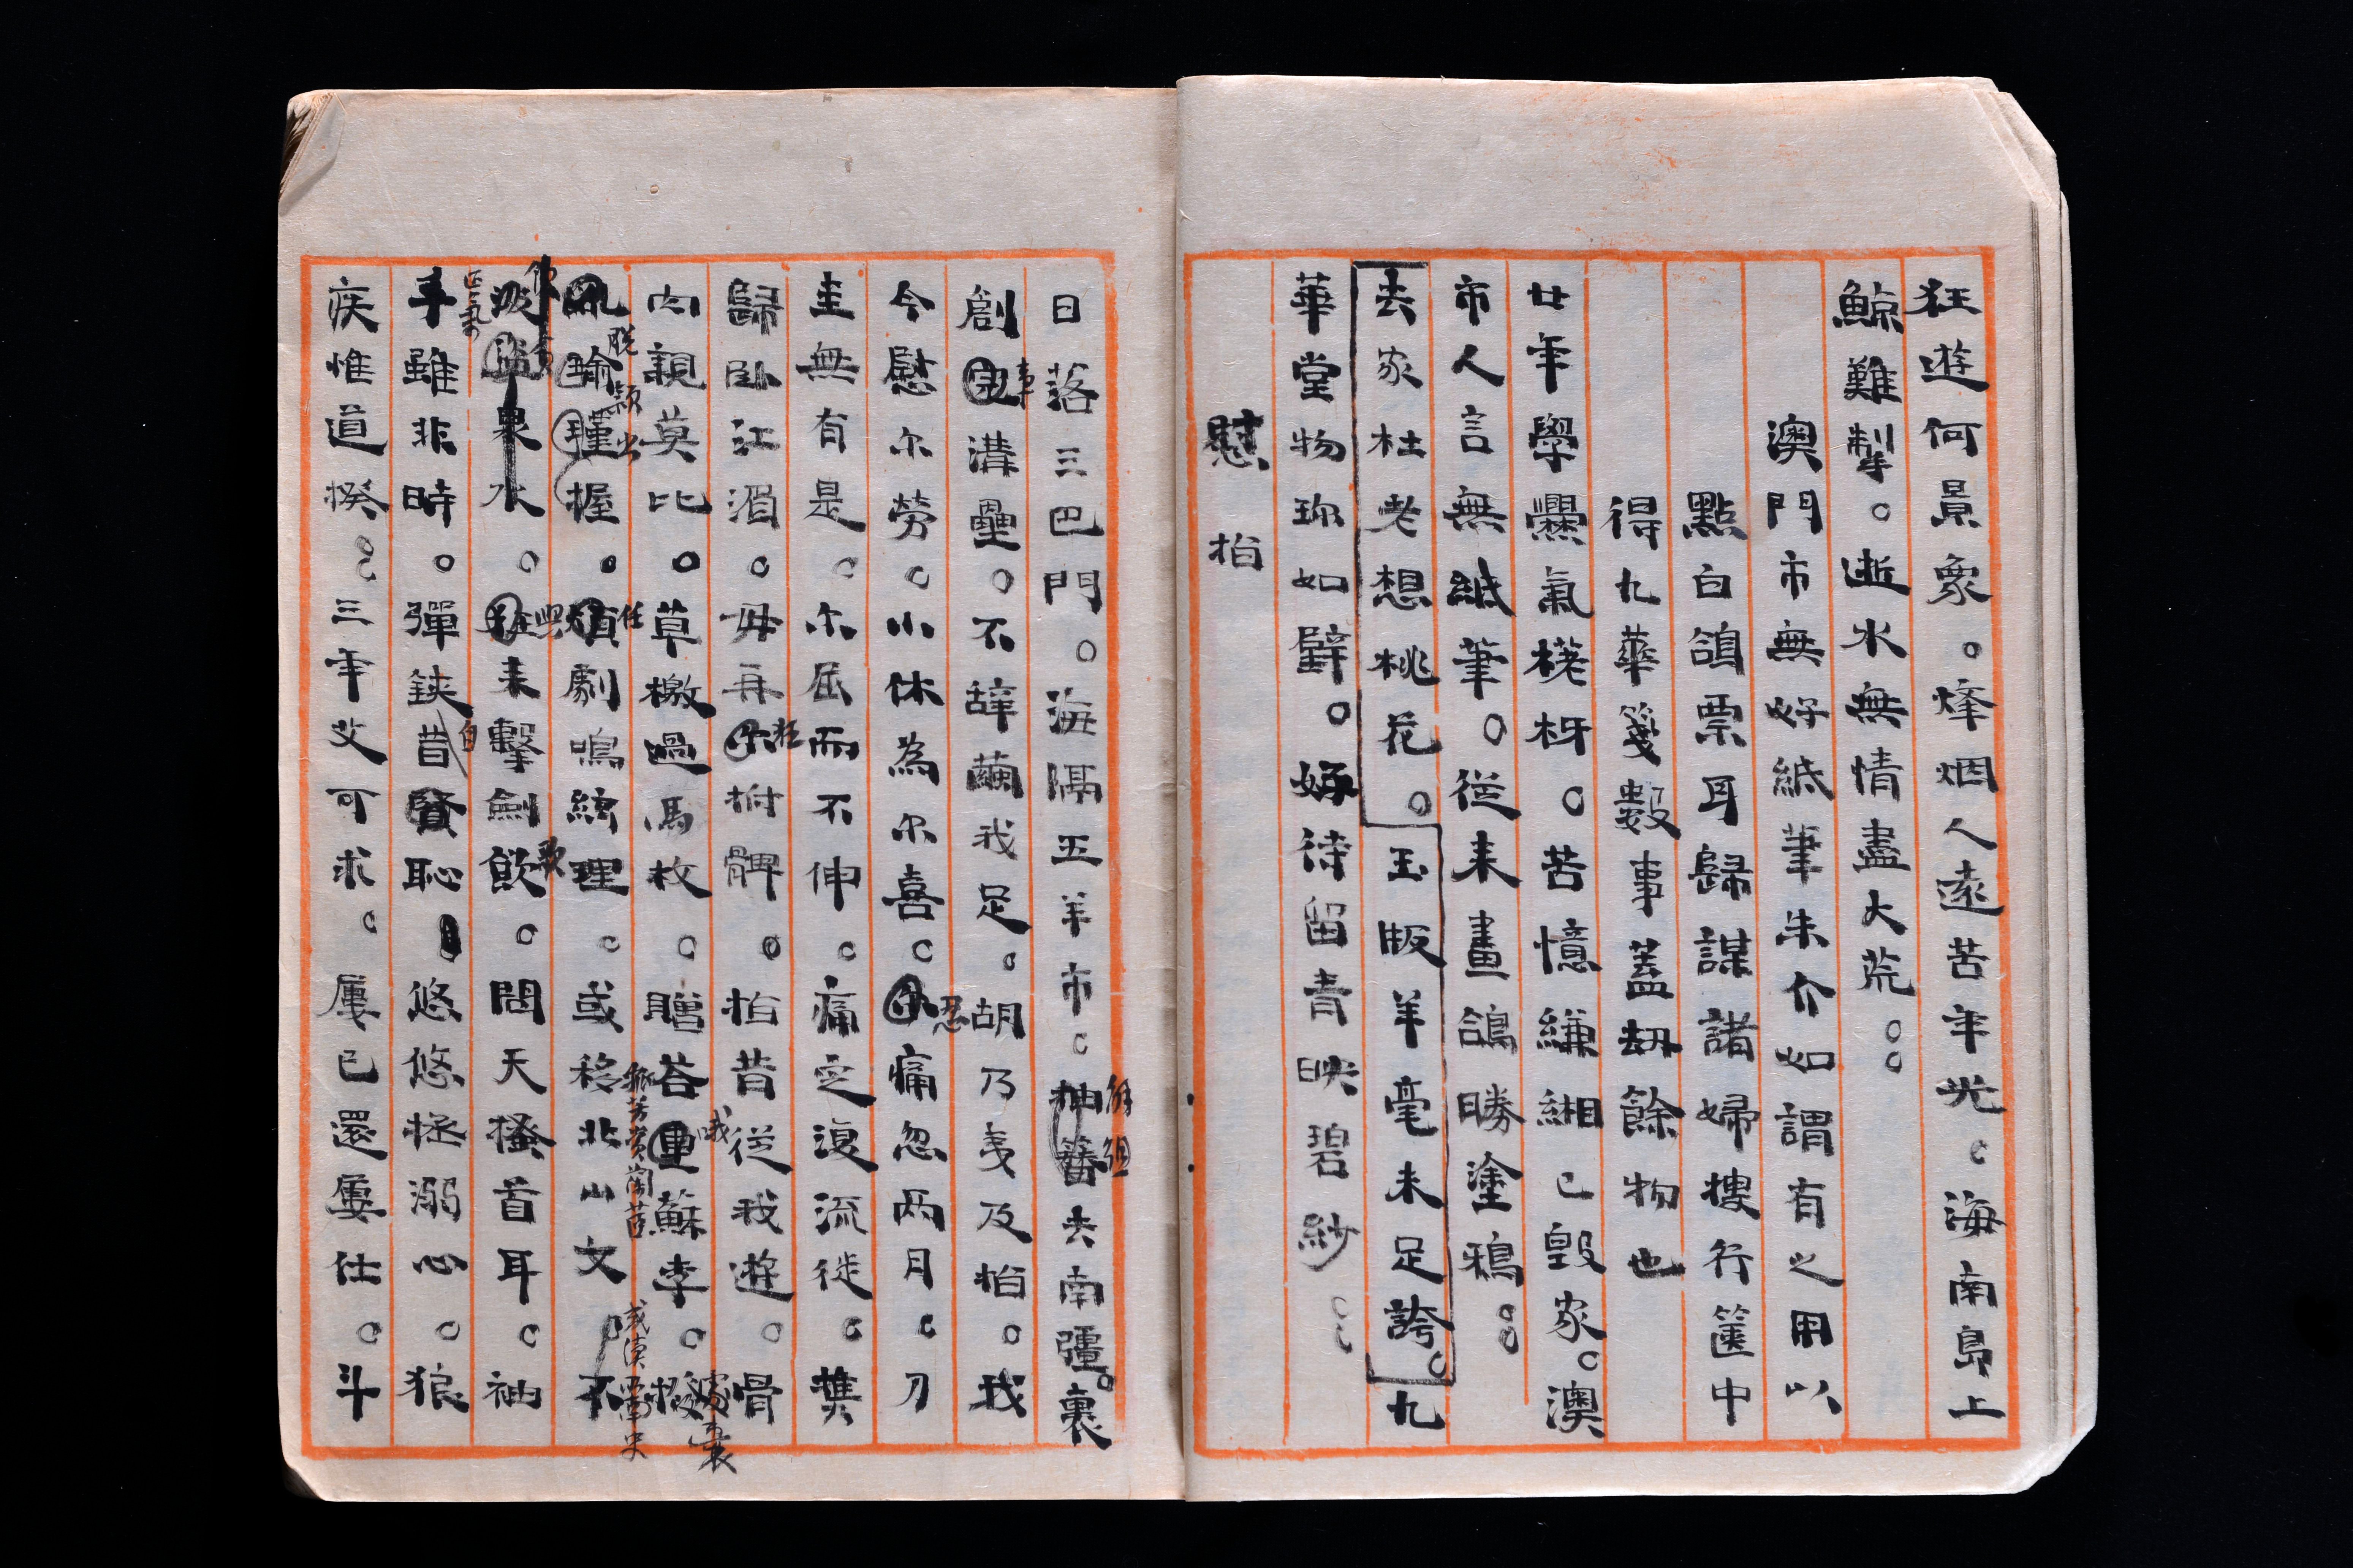 狂遊何景象。烽烟人遠苦年光。海南島上
鯨難掣。逝水無情盡大荒。。
澳門市無好紙筆朱介如謂有之用以
點白鴿票耳歸謀諸婦搜行篋中
得九華箋數事蓋劫餘物也
廿年學爨氣槎枒。苦憶縑緗已毀家。澳
市人言無紙筆。從來畫鴿勝塗鴉。。
去家杜老想桃花。玉版羊毫未足誇。九
華堂物珍如璧。好待留青映碧紗。。
慰柏
日落三巴門。海隔五羊市。抽簪去南疆。裹
解組
創溝壘。不辭繭我足。胡乃夷及柏。我
事
今慰尔勞。小休為尔喜。尔痛忽兩月。刀
忍
圭無有是。尔屈而不伸。痛定復流徙。冀
歸臥江湄。毋再尔拊髀。柏昔從我遊。骨
狂
肉親莫比。草檄過馬枚。贈荅重蘇李。
哦
瑜瑾握。劇鳴絃理。或移北山文不
脫穎出
任
紉芳賞蘭茝
或漬
果水。來擊劍飲。問天搔首耳。袖
歌
手雖非時。彈鋏昔賢恥。悠悠拯溺心。狼
正氣
自
疾惟道揆。。三年艾可求。屢已還屢仕。斗